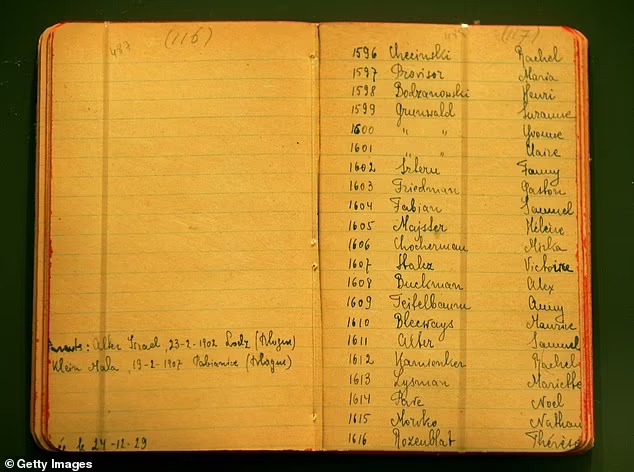 487 (116)
Parents: Alter Israel, 23-2-1902 Lodz (Pologne)
Klein Mala, 19-2-1907 Pabianice (Pologne)
le 24-12-29
(117)
1596 Checinski Rachel
1597 Provisor Maria
1598 Bodzanowski Henri
1599 Grunwald Suzanne
1600 " " Yvonne
1601 " " Claire
1602 Sztern Fanny
1603 Friedman Gaston
1604 Fabian Samuel
1605 Majster Hélène
1606 Chocherman Mirka
1607 Victoire
1608 Buckman Alex
1609 Teitelbaum Anny
1610 Bleeways Maurice
1611 Alter Samuel
1612 Kamionker Rachel
1613 Lysman Mariette
1614 Noël
1615 Nathan
1616 Rozenblat Thérèse
© Getty Images